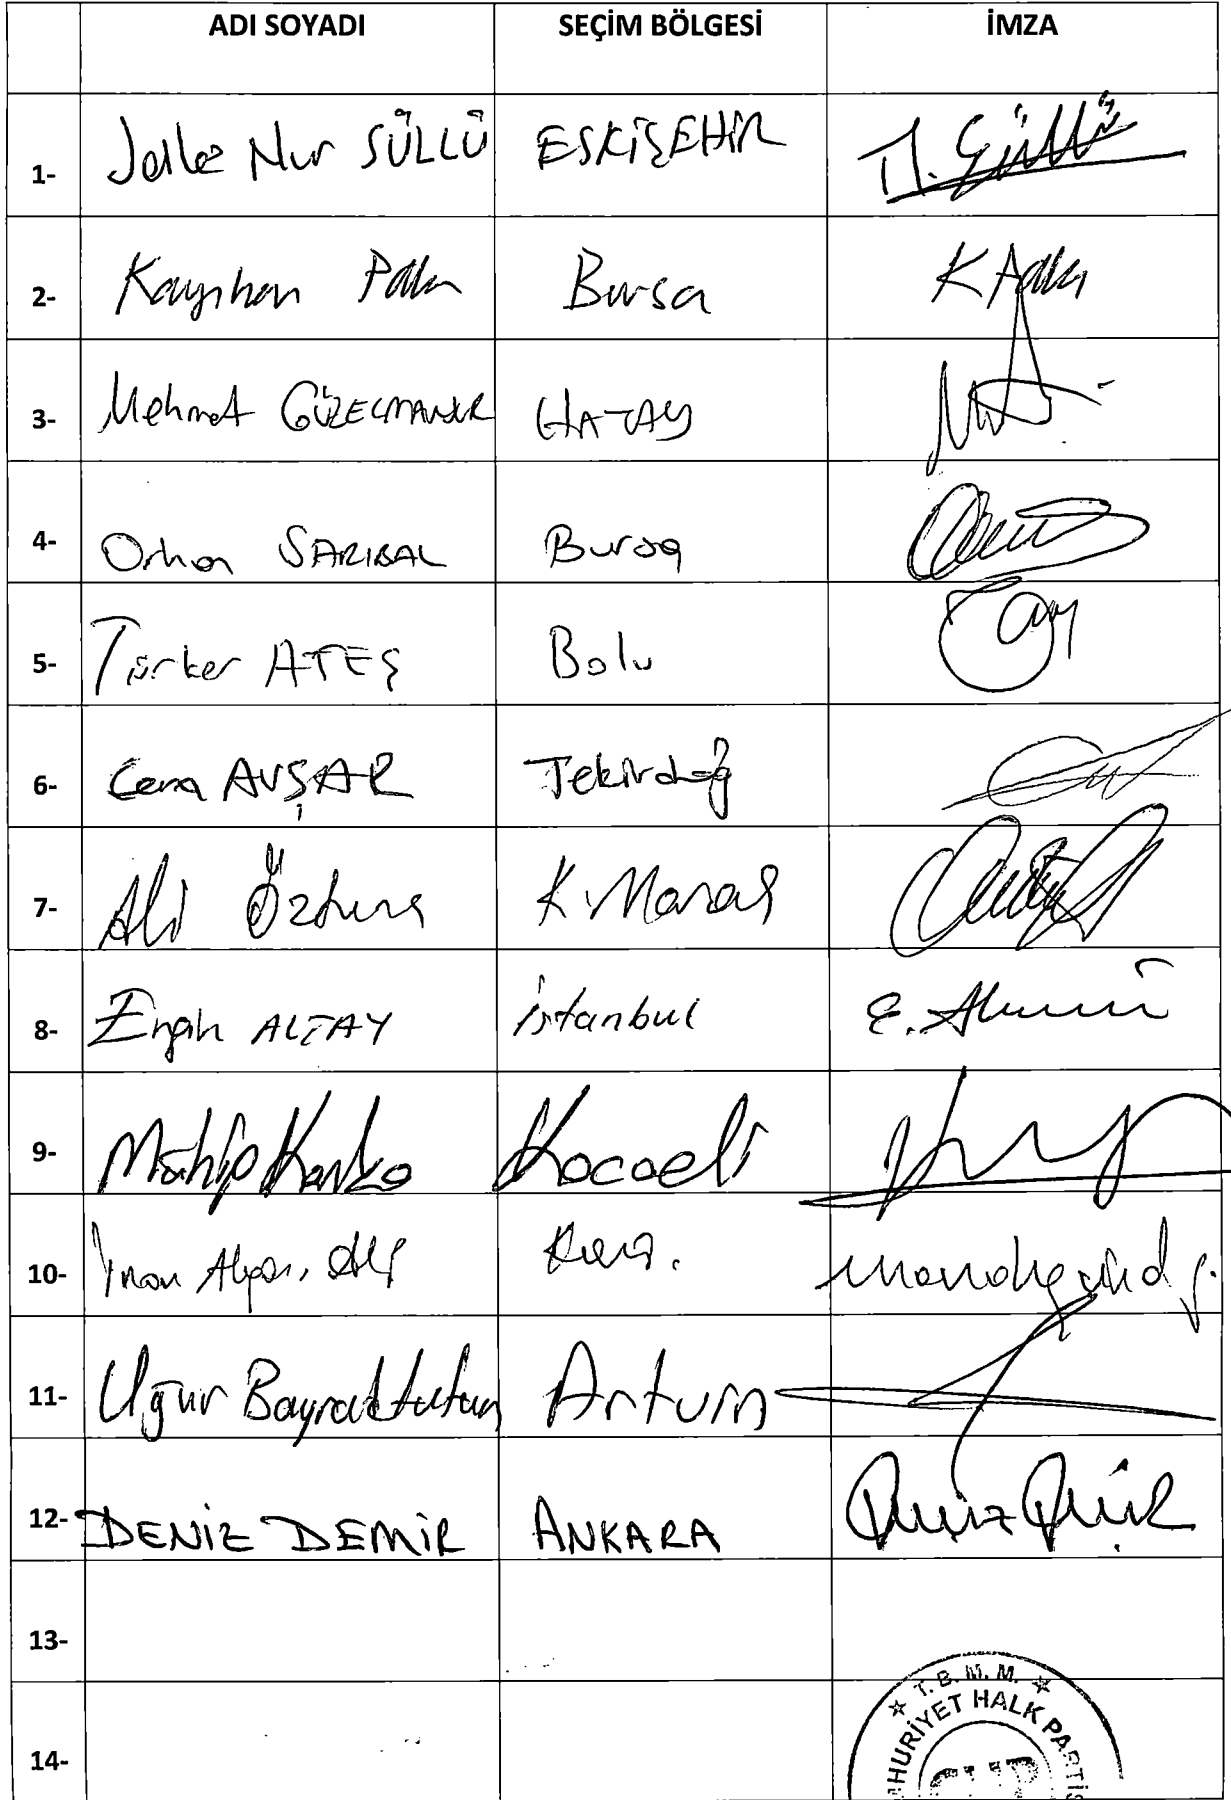 ADI SOYADI SEÇİM BÖLGESİ İMZA
1- Jale Nur SÜLLÜ ESKİŞEHİR
2- Kayıhan Pala Bursa
3- Mehmet GÜZELMANSUR HATAY
4- Orhan SARIBAL Bursa
5- Türker ATEŞ Bolu
6- Cem AVŞAR Tekirdağ
7- Ali Öztunç K.Maraş
8- Engin ALTAY İstanbul E.
9- Mühip Kanko Kocaeli
10- İnan Akgün Alp Kars.
11- Uğur Bayraktutan Artvin
12- DENİZ DEMİR ANKARA
13-
14-
T.B.M.M.
HURİYET HALK PARTİS
CHP